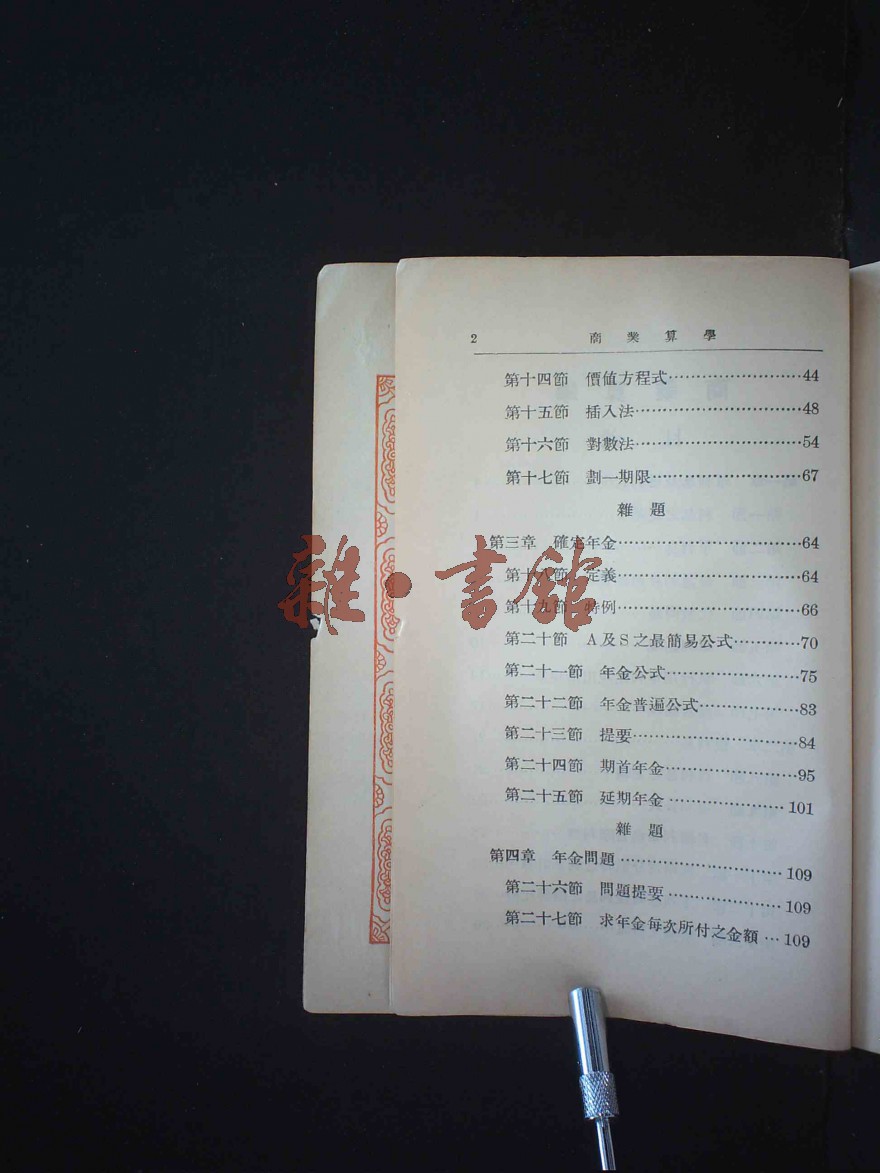 2 商業算學
第十四節 價值方程式························44
第十五節 插入法······························48
第十六節 對數法······························54
第十七節 劃一期限···························67
雜題
第三章 確定年金·································64
第十八節 定義·································64
第十九節 特例·································66
第二十節 A及S之最簡易公式············70
第二十一節 年金公式························75
第二十二節 年金普遍公式··················83
第二十三節 提要······························84
第二十四節 期首年金························95
第二十五節 延期年金·····················101
雜題
第四章 年金問題·····························109
第二十六節 問題提要·····················109
第二十七節 求年金每次所付之金額···109
雜·書館